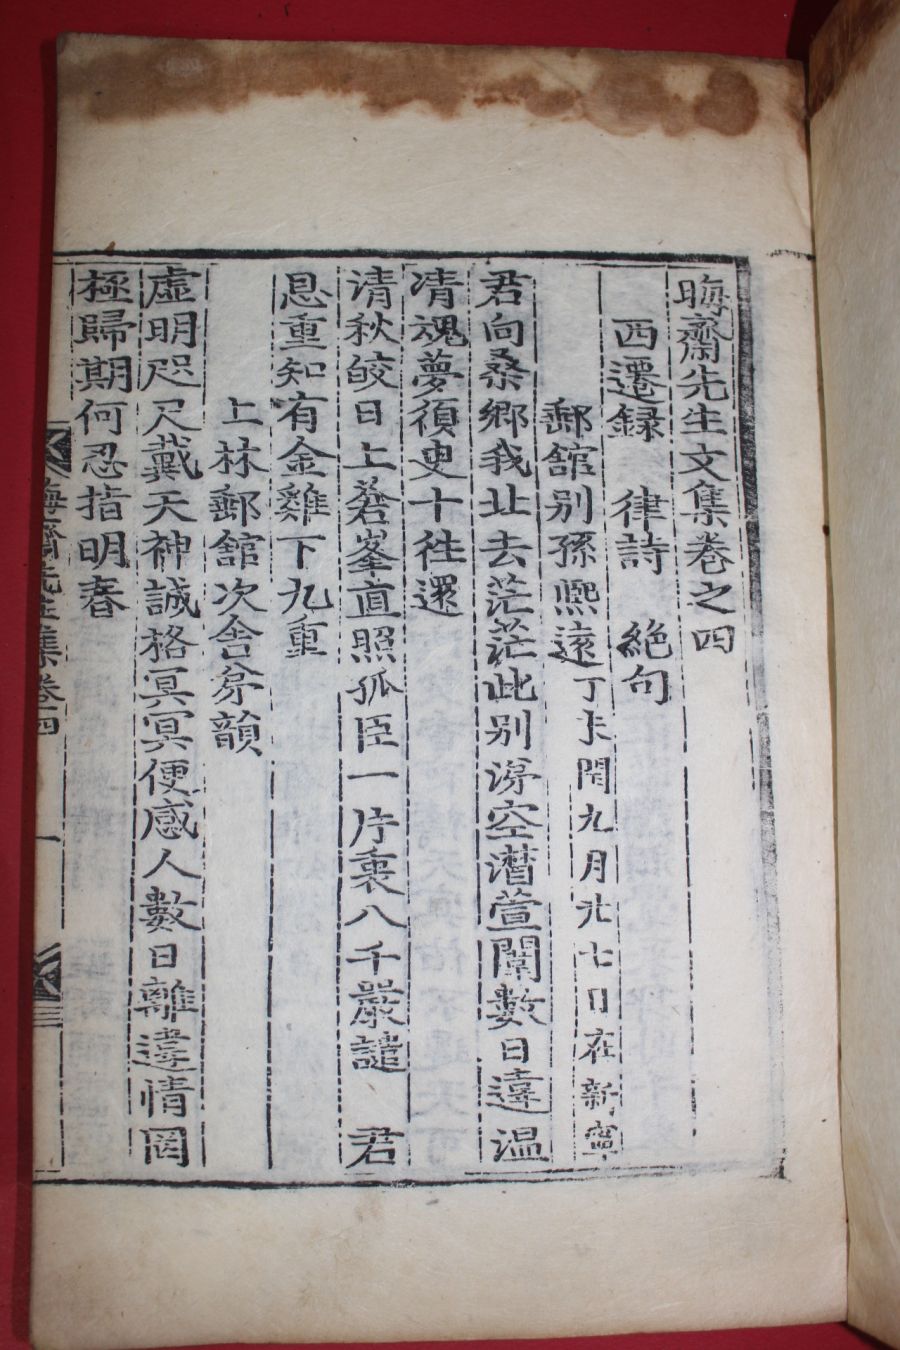 晦齋先生文集卷之四
西遷録 律詩 絶句
郵舘别孫熙遠丁未閏九月廿七日在新寧
君向桑郷我北去茫茫此别涕空潸萱闈數日違温
凊魂夢須臾十徃還
清秋皎日上蒼峯直照孤臣一片衷八千嚴譴 君
恩重知有金雞下九重
上林郵舘次舍弟韻
虚明咫尺戴天神誠格冥冥便感人數日離違情罔
極歸期何忍指明春
晦齋先生集卷四 一